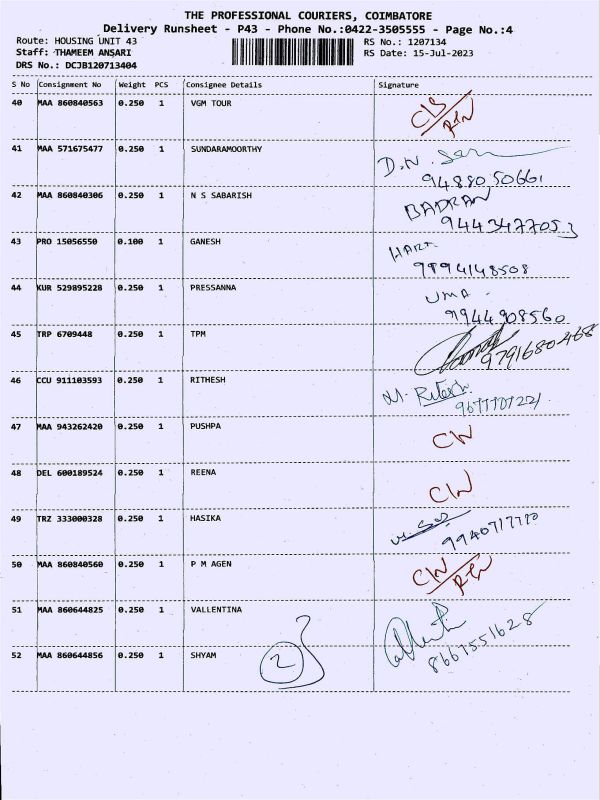 THE PROFESSIONAL COURIERS, COIMBATORE
Delivery Runsheet - P43 - Phone No.:0422-3505555 - Page No.:4
Route: HOUSING UNIT 43 RS No.: 1207134
Staff: THAMEEM ANSARI RS Date: 15-Jul-2023
DRS No.: DCJB120713404
S No Consignment No Weight PCS Consignee Details Signature
40 MAA 860840563 0.250 1 VGM TOUR
41 MAA 571675477 0.250 1 SUNDARAMOORTHY D.N.
9488050661
42 MAA 860840306 0.250 1 N S SABARISH BADRAN
9443477053
43 PRO 15056550 0.100 1 GANESH HARI
9894148508
44 KUR 529895228 0.250 1 PRESSANNA UMA
9944908560
45 TRP 6709448 0.250 1 TPM
9791680468
46 CCU 911103593 0.250 1 RITHESH M. Ritesh
47 MAA 943262420 0.250 1 PUSHPA
48 DEL 600189524 0.250 1 REENA
49 TRZ 333000328 0.250 1 HASIKA
50 MAA 860840560 0.250 1 P M AGEN
51 MAA 860644825 0.250 1 VALLENTINA
8667551628
52 MAA 860644856 0.250 1 SHYAM 2